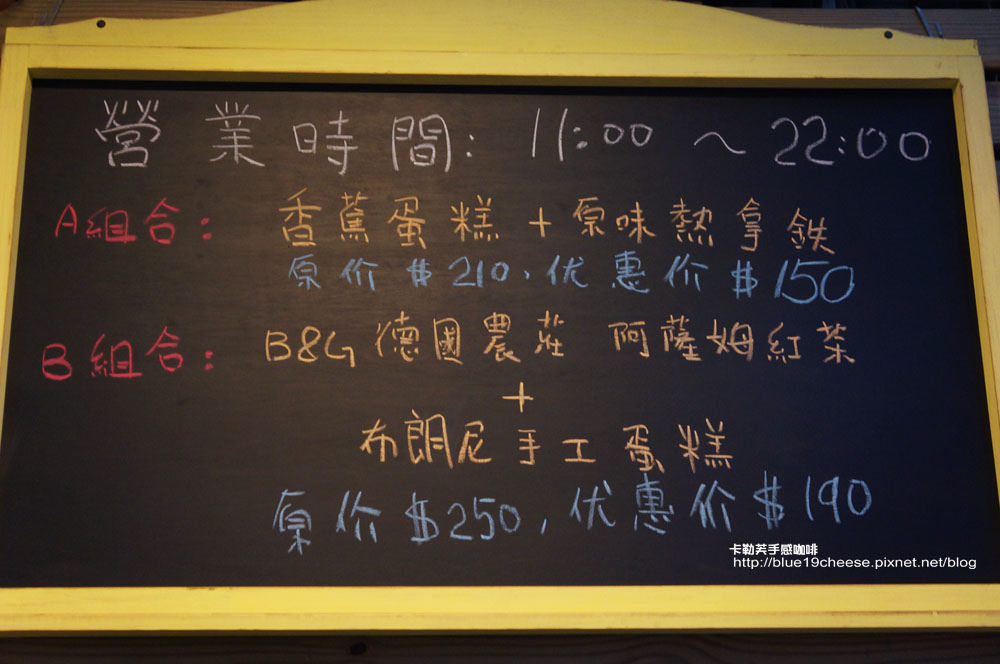 營業時間: 11:00 ~ 22:00
A組合: 香蕉蛋糕 + 原味熱拿鉄
原价 $210, 优惠价 $150
B組合: B&G 德國農莊 阿薩姆紅茶
+
布朗尼手工蛋糕
原价 $250, 优惠价 $190
卡勒芙手感咖啡
http://blue19cheese.pixnet.net/blog